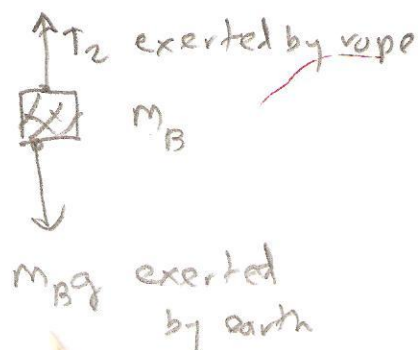 T₂ exerted by rope
m_B
m_B g exerted
by earth